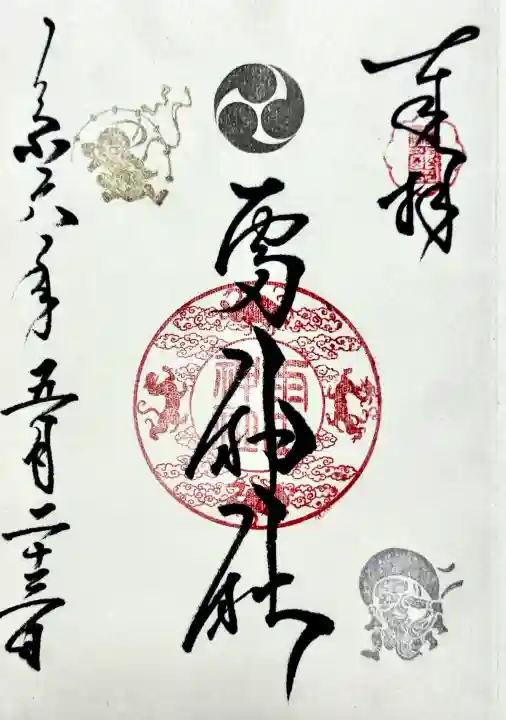 奉拝
雷神社
令和六年五月二十三日